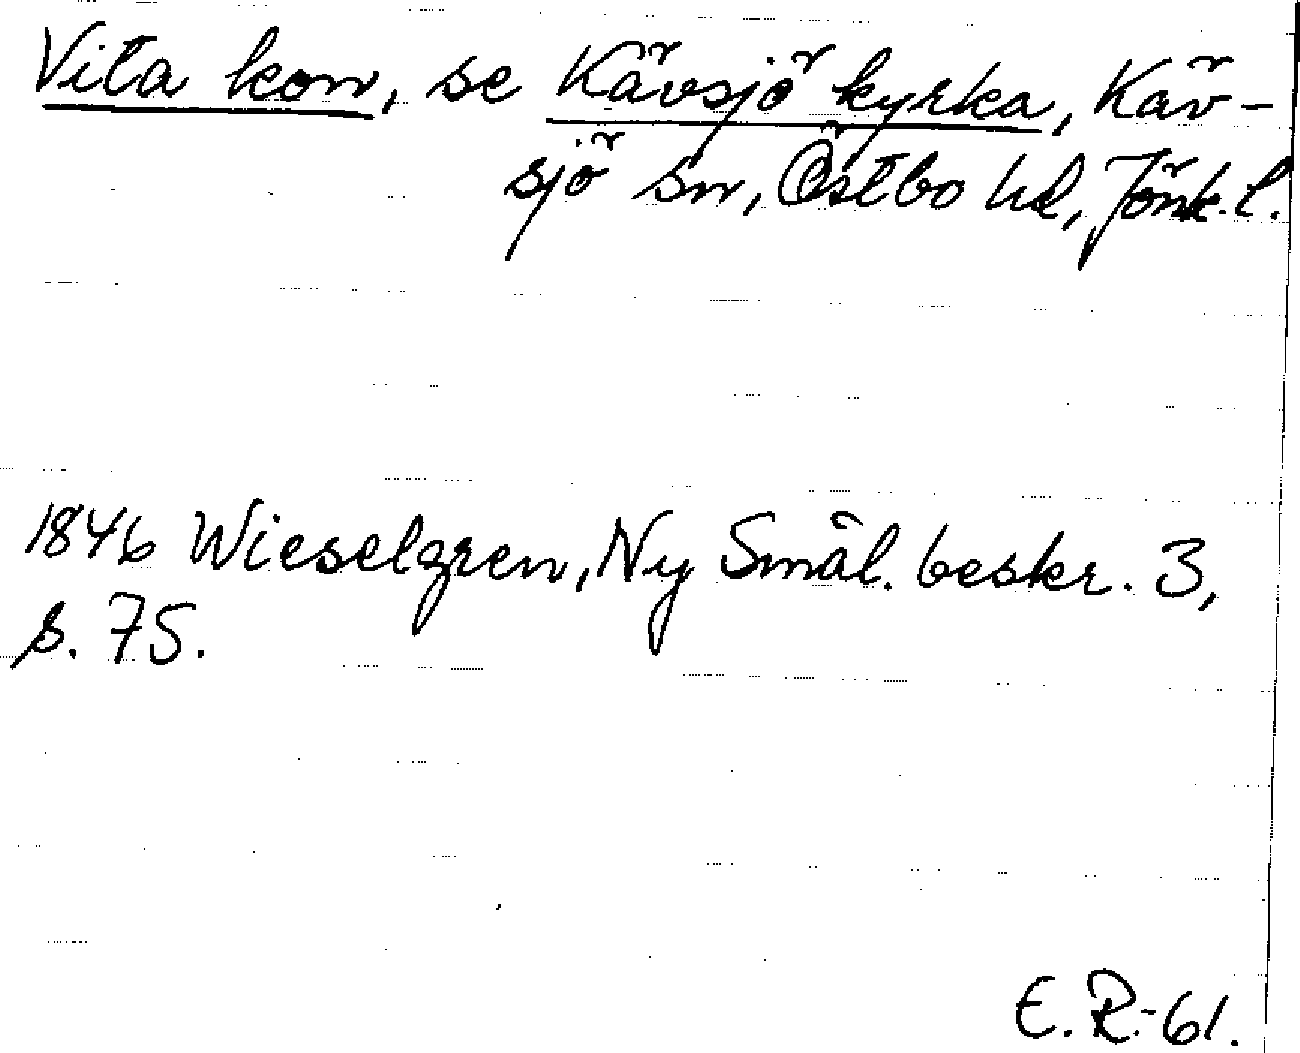 Vita kon, se Kävsjö kyrka, Käv-
sjö sn, Östbo hd, Jönk. l.
1846 Wieselgren, Ny Smål. beskr. 3,
s. 75.
E. R.-61.